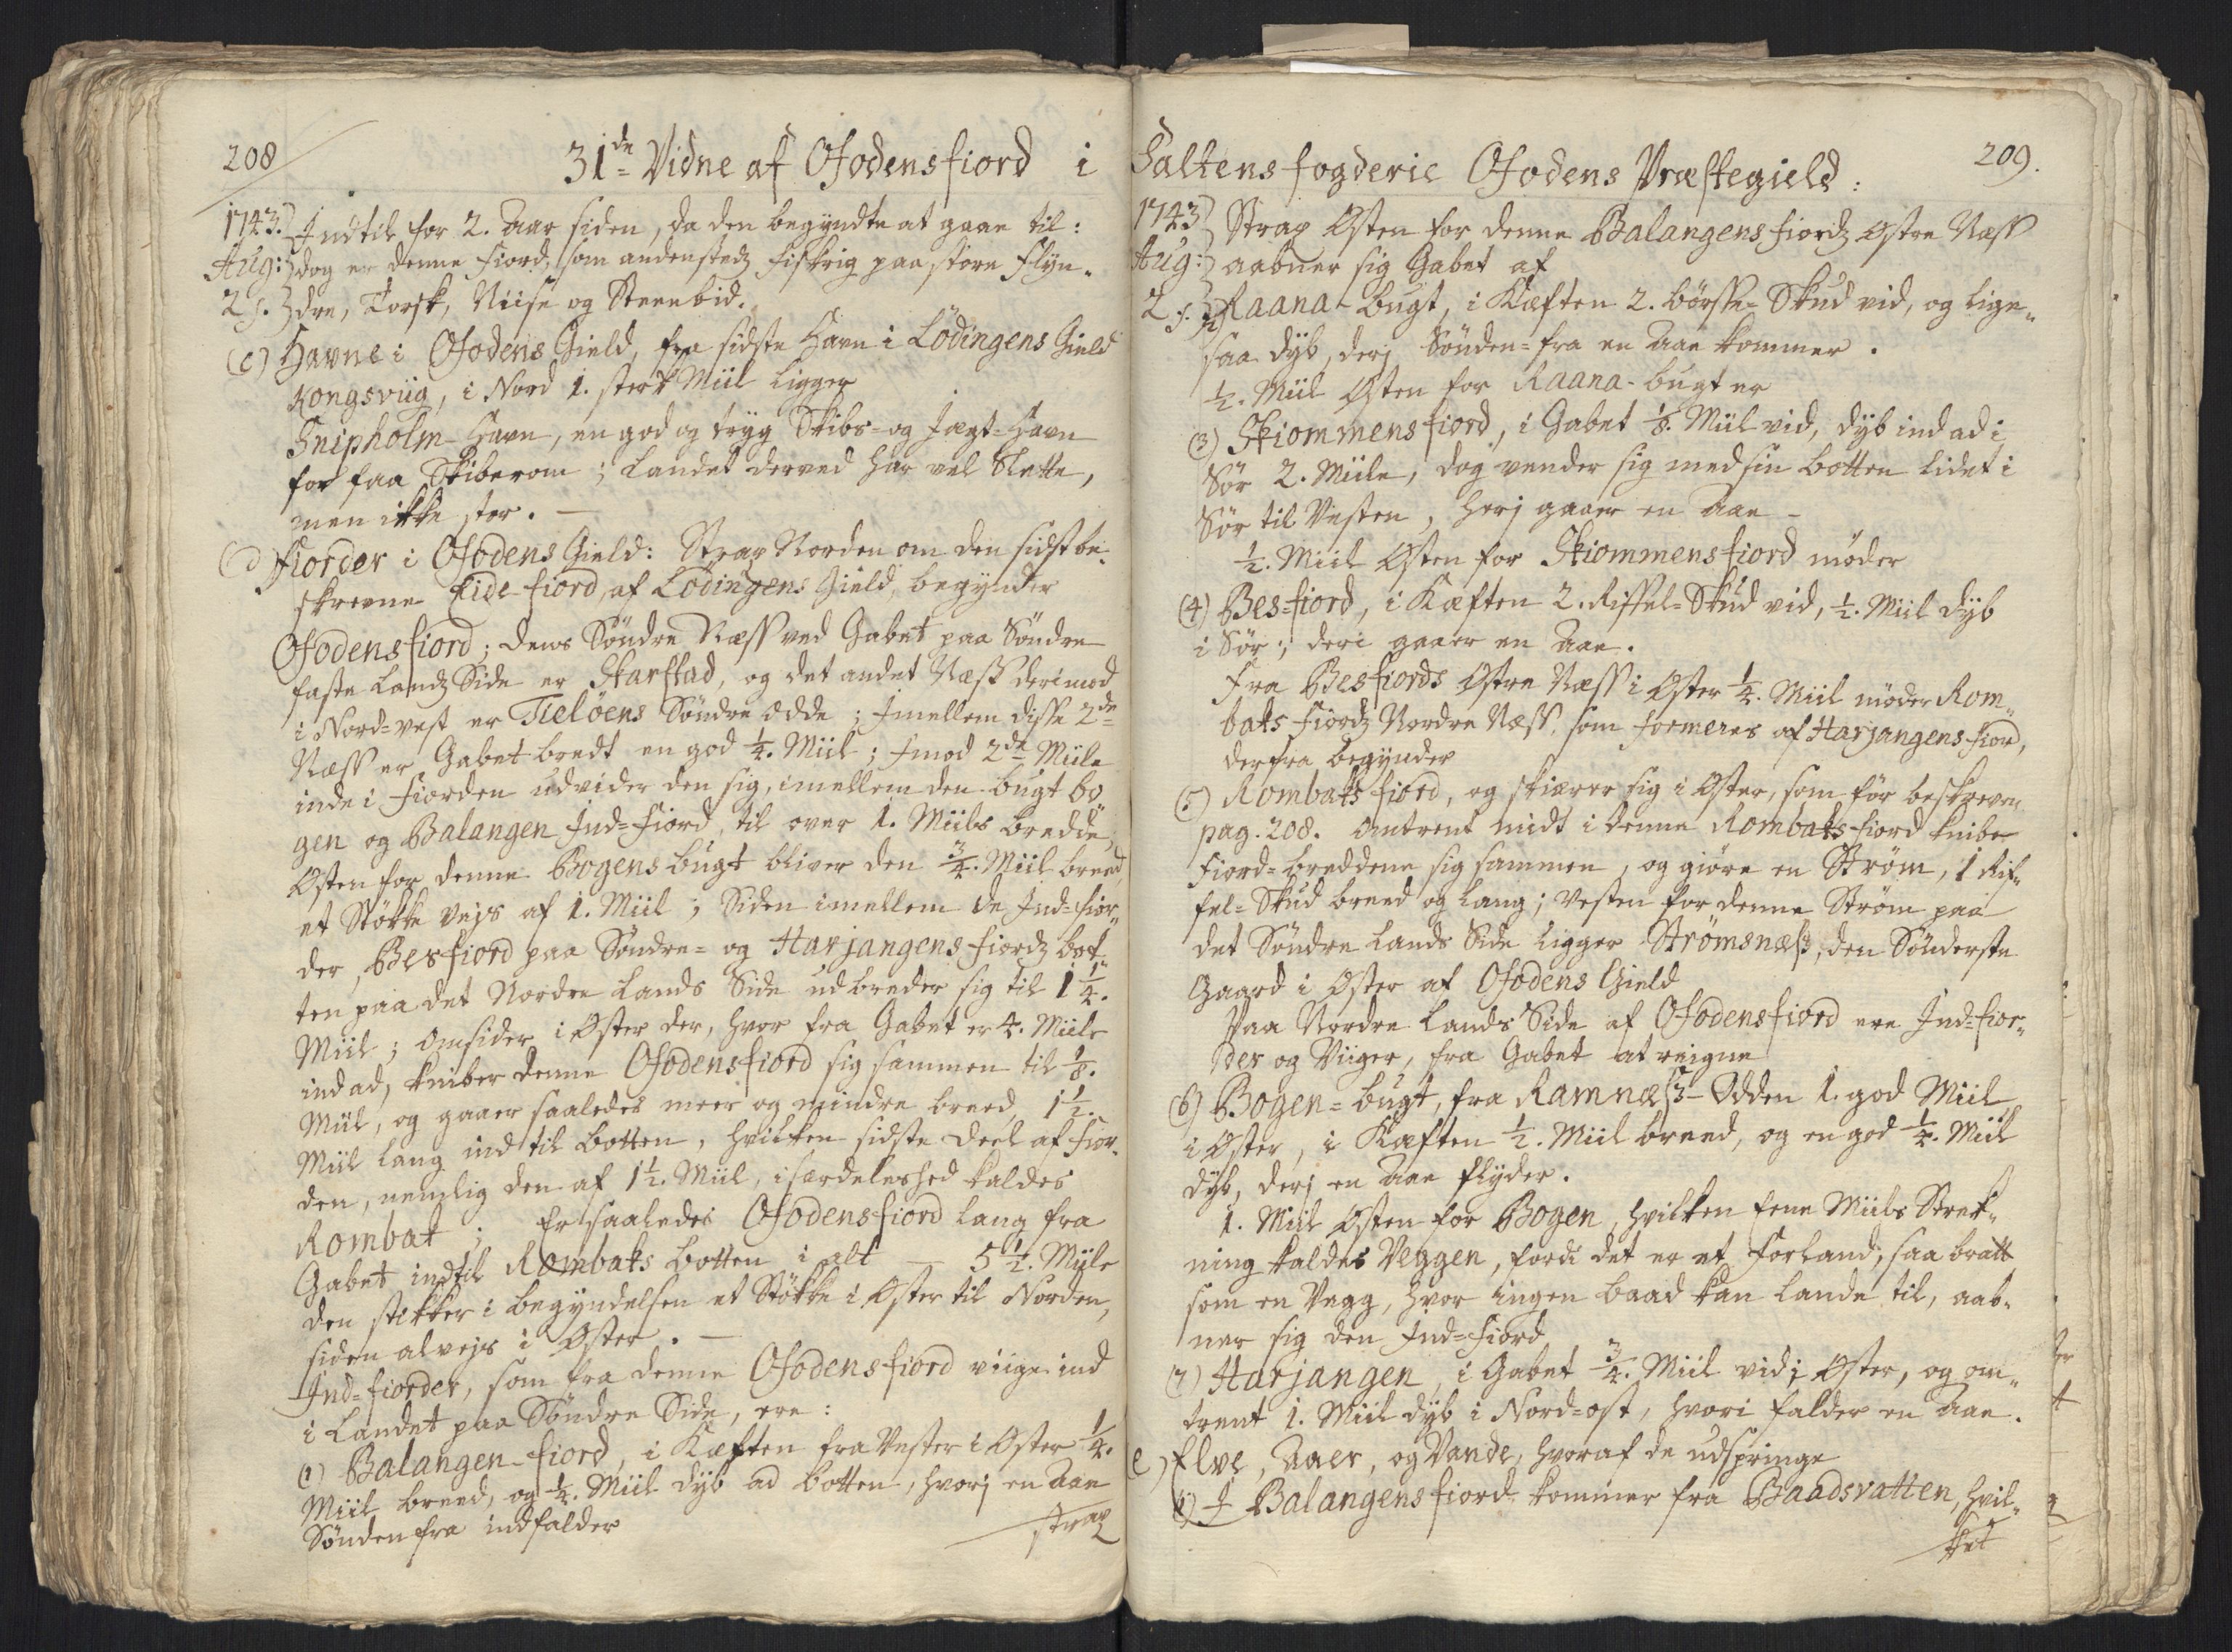 208
31de Vidne af Ofodensfiord i
1743. Indtil for 2. Aar siden, da den begyndte at gaae til:
Aug: dog er denne Fiord, som andenstedz fiskrig paa store Flyn-
2 s. dre, Torsk, Niise og Steenbid.
(c) Havne i Ofodens Gield, fra sidste Havn i Lödingens Gield
Kongsviig, i Nord 1. sterk Miil ligger
Snipholm-Havn, en god og tryg Skibs- og Jægt-Havn
for faa Skiberom; Landet derved har vel Slette,
men ikke stor. —
(d) Fiorder i Ofodens Gield: Strax Norden om den sidst be-
skrevne Eide-fiord, af Lödingens Gield, begynder
Ofodensfiord; dens Søndre Næss ved Gabet paa Søndre
faste Landz Side er Skarstad, og det andet Næss derimod
i Nord-vest er Tieløens Søndre Odde; Imellem disse 2de
Næss er Gabet bredt en god ¼. Miil; Imod 2de Miile
inde i Fiorden udvider den sig, imellem den bugt Bo-
gen og Balangen Ind-Fiord, til over 1. Miils bredde,
Østen for denne Bogens bugt bliver den ¾. Miil breed,
et Støkke Vejs af 1. Miil; Siden imellem de Ind-fior-
der, Besfiord paa Søndre- og Harjangens fiordz bot-
ten paa det Nordre Lands Side udbreder sig til 1¼.
Miil; omsider i Øster der, hvor fra Gabet er 4. Miile
ind ad, kniber denne Ofodensfiord sig sammen til ⅛.
Miil, og gaaer saaledes meer og mindre breed, 1½.
Miil lang ind til botten, hvilken sidste Deel af Fior-
den, nemlig den af 1½. Miil, isærdeleshed kaldes
Rombak; Er saaledes Ofodensfiord lang fra
Gabet indtil Rombaks botten i alt — 5½. Miile
den stikker i begyndelsen et Støkke i Øster til Norden,
siden alvejs i Øster. —
Ind-fiorder, som fra denne Ofodensfiord viige ind
i Landet paa Søndre Side, ere:
(1) Balangen-fiord, i Kæften fra Vester i Øster ¼.
Miil breed, og ½. Miil dyb ad botten, hvorj en Aae
Sønden fra indfalder
strax
Saltens fogderie Ofodens Præstegield:
209.
1743 Strax Østen for denne Balangensfiordz Østre Næss
Aug: aabner sig Gabet af
2 s. (2) Raana-bugt, i Kæften 2. børsse-Skud vid, og lige-
saa dyb, derj Sønden-fra en Aae kommer.
½. Miil Østen for Raana-bugt er
(3) Skiommensfiord, i Gabet ⅛. Miil vid, dyb ind ad i
Sør 2. Miile, dog vender sig med sin botten lidet i
Sør til Vesten, herj gaaer en Aae –
½. Miil Østen for Skiommensfiord møder
(4) Bes-fiord, i Kæften 2. Riffel-Skud vid, ½. Miil dyb
i Sør; deri gaaer en Aae.
Fra Besfiords Østre Næss i Øster ¼. Miil møder Rom-
baks Fiordz Nordre Næss, som formeres af Harjangensfiord,
derfra begynder
(5) Rombaksfiord, og skiærer sig i Øster, som før beskreven
pag. 208. Omtrent midt i denne Rombaksfiord knibe
Fiord-breddene sig sammen, og giøre en Strøm, 1 Rif-
fel-Skud breed og lang; Vesten for denne Strøm paa
det Søndre Lands Side ligger Strømsnæss, den Sønderste
Gaard i Øster af Ofodens Gield
Paa Nordre Lands Side af Ofodensfiord ere Ind-fior-
der og Viiger, fra Gabet at reigne
(6) Bogen-bugt, fra Ramnæss-Odden 1. god Miil
i Øster, i Kæften ½. Miil breed, og en god ¼. Miil
dyb, derj en Aae flyder.
1. Miil Østen for Bogen, hvilken Eene Miils Strek-
ning kaldes Veggen, fordi det er et Forland, saa bratt
som en Vegg, hvor ingen baad kan lande til, aab-
ner sig den Ind-Fiord
(7) Harjangen, i Gabet ¾. Miil vid i Øster, og om-
trent 1. Miil dyb i Nord-ost, hvori falder en Aae.
(e) Elve, Aaer, og Vande, hvoraf de udspringe
(1) I Balangensfiord kommer fra Baadsvatten, hvil-
ket